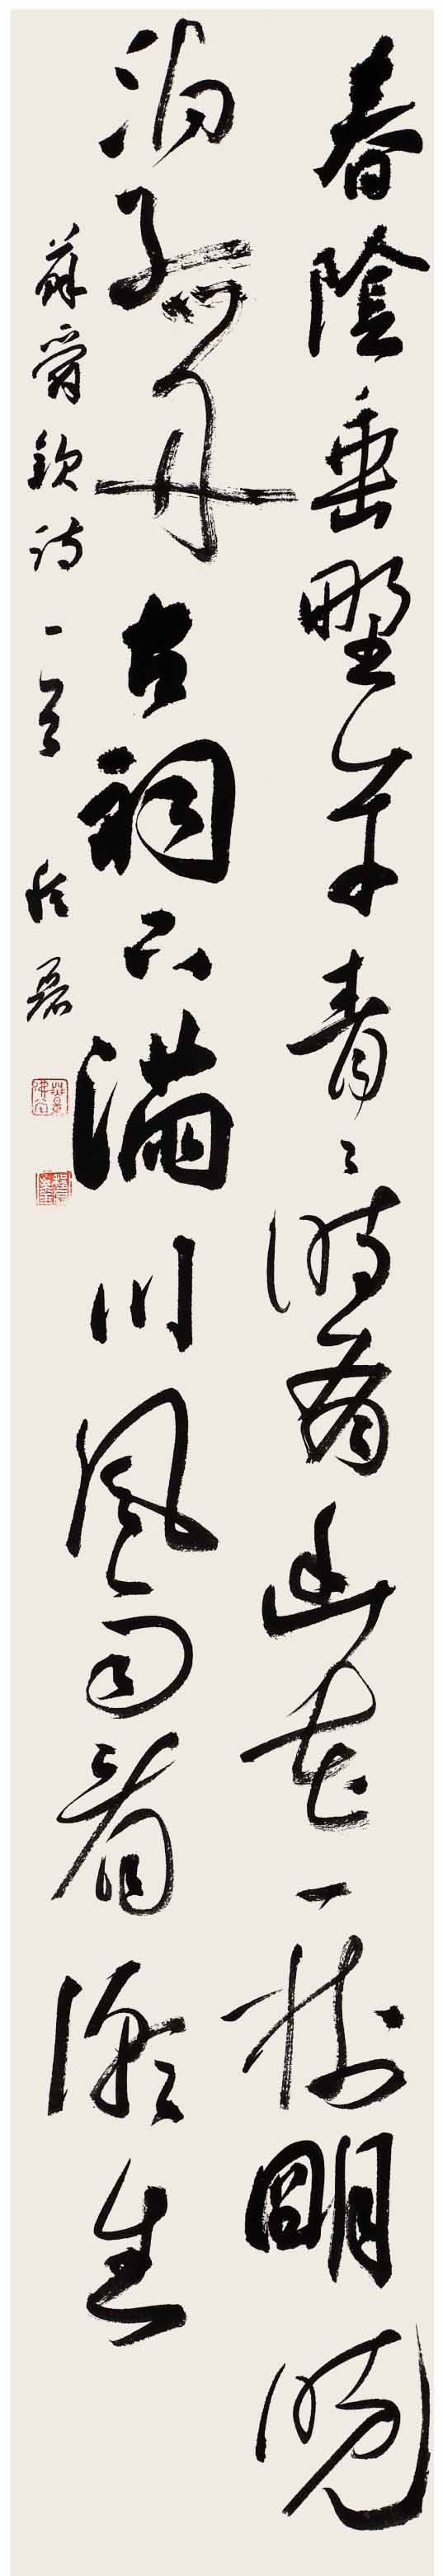 春陰垂野草青〻時有幽花一樹明晚
泊孤舟古祠下滿川風雨看潮生
蘇舜欽詩一首 磊